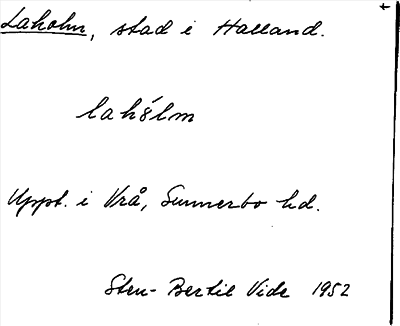 Laholm, stad i Halland.
lahɞ́lm
Uppt. i Vrå, Sunnerbo hd.
Sten-Bertil Vide 1952